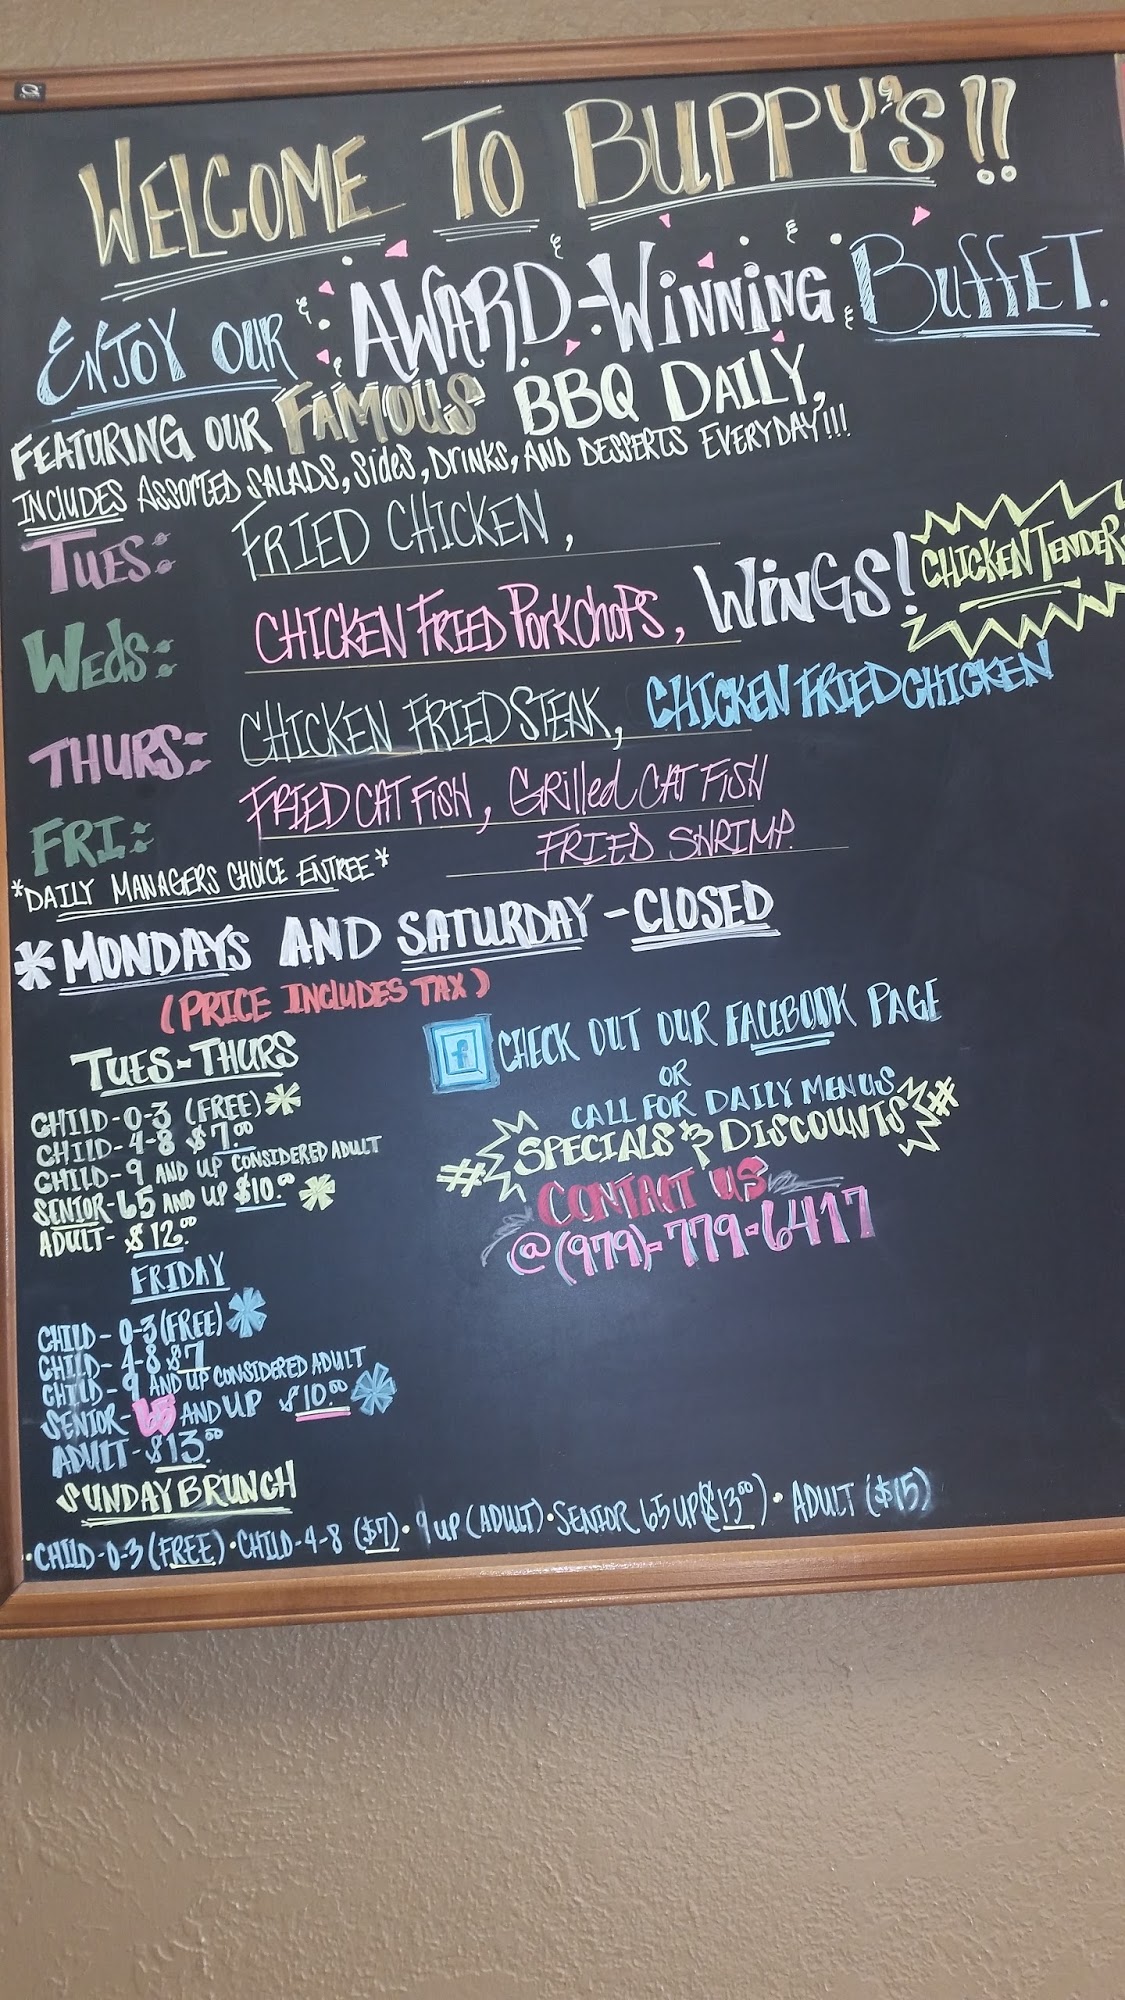 WELCOME TO BUPPY'S!!
ENJOY OUR AWARD-WINNING BUFFET.
FEATURING OUR FAMOUS BBQ DAILY,
INCLUDES ASSORTED SALADS, SIDES, DRINKS, AND DESSERTS EVERYDAY!!!!
TUES: FRIED CHICKEN,
WEDS: CHICKEN FRIED PORKCHOPS, WINGS! CHICKEN TENDERS
THURS: CHICKEN FRIED STEAK, CHICKEN FRIED CHICKEN
FRI: FRIED CATFISH, GRILLED CATFISH
FRIED SHRIMP.
*DAILY MANAGERS CHOICE ENTREE*
*MONDAYS AND SATURDAY - CLOSED
(PRICE INCLUDES TAX)
TUES-THURS
CHILD-0-3 (FREE)*
CHILD-4-8 $7.00
CHILD-9 AND UP CONSIDERED ADULT
SENIOR-65 AND UP $10.00*
ADULT- $12.00
f CHECK OUT OUR FACEBOOK PAGE
OR
CALL FOR DAILY MENUS
#SPECIALS & DISCOUNTS#
CONTACT US
@(979)-779-6417
FRIDAY
CHILD-0-3(FREE)*
CHILD-4-8 $7
CHILD-9 AND UP CONSIDERED ADULT
SENIOR-65 AND UP $10.00*
ADULT-$13.00
SUNDAY BRUNCH
•CHILD-0-3(FREE)•CHILD-4-8 ($7)•9 UP (ADULT)•SENIOR 65 UP($13.00)•ADULT ($15)